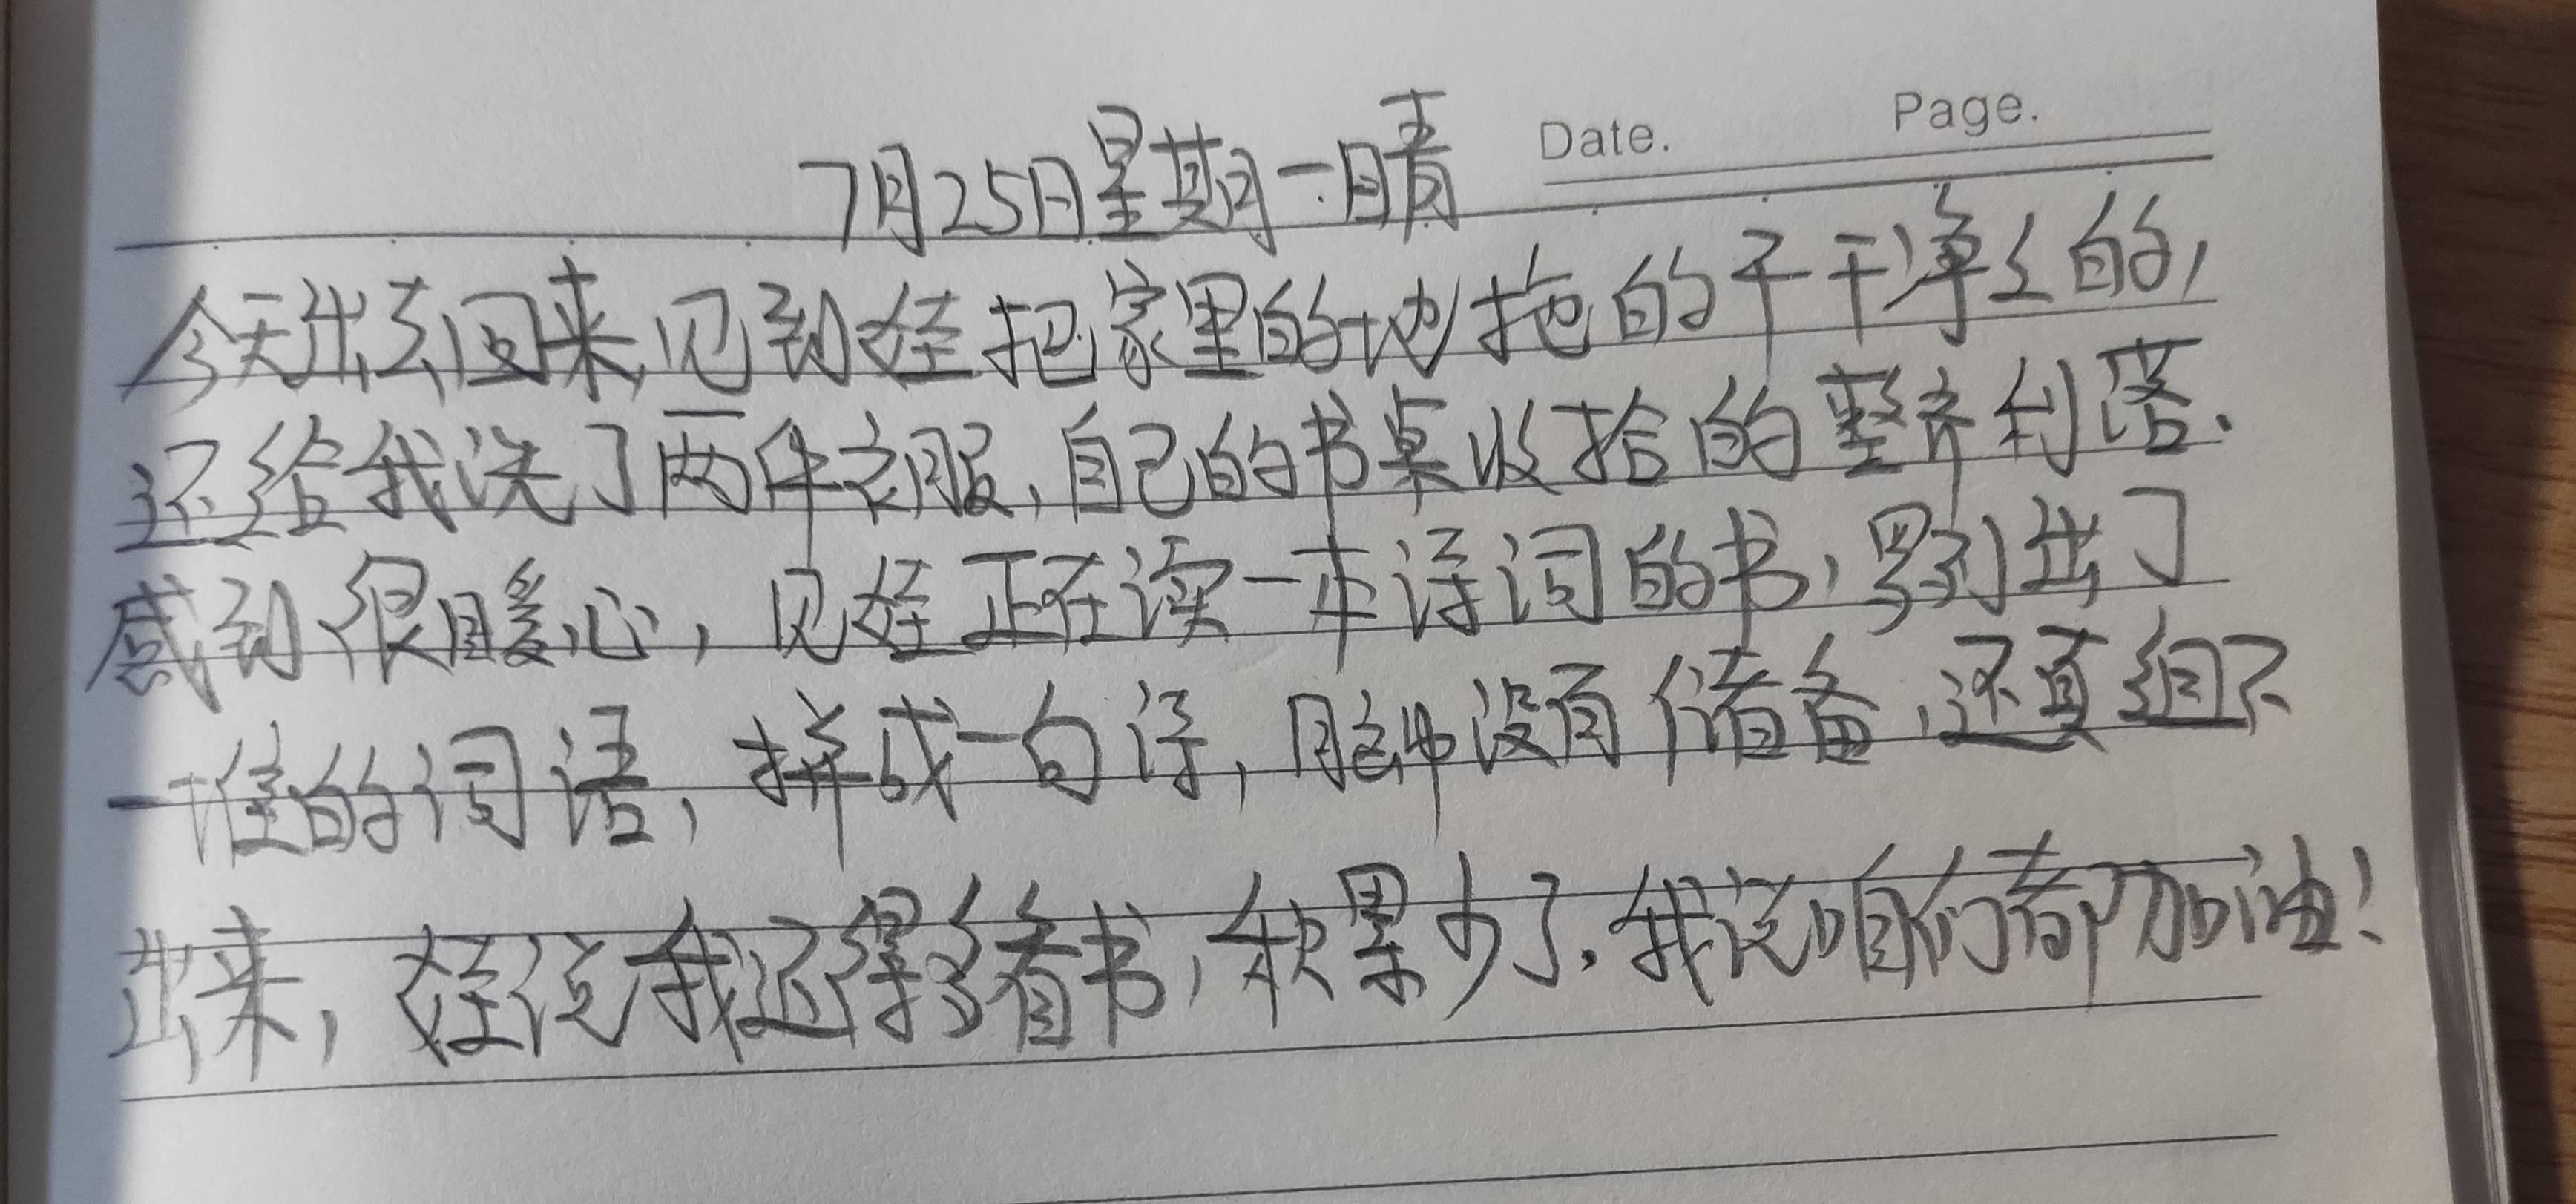 Date. Page.
7月25日星期一晴
今天出去回来,见到娃把家里的地拖的干干净净的,
还给我洗了两件衣服,自己的书桌收拾的整齐利落.
感到很暖心,见娃正在读一本诗词的书,罗列出了
一堆的词语,拼成一句诗,脑中没有储备,还真组不
出来,娃说我还得多看书,积累少了.我说咱们都加油!